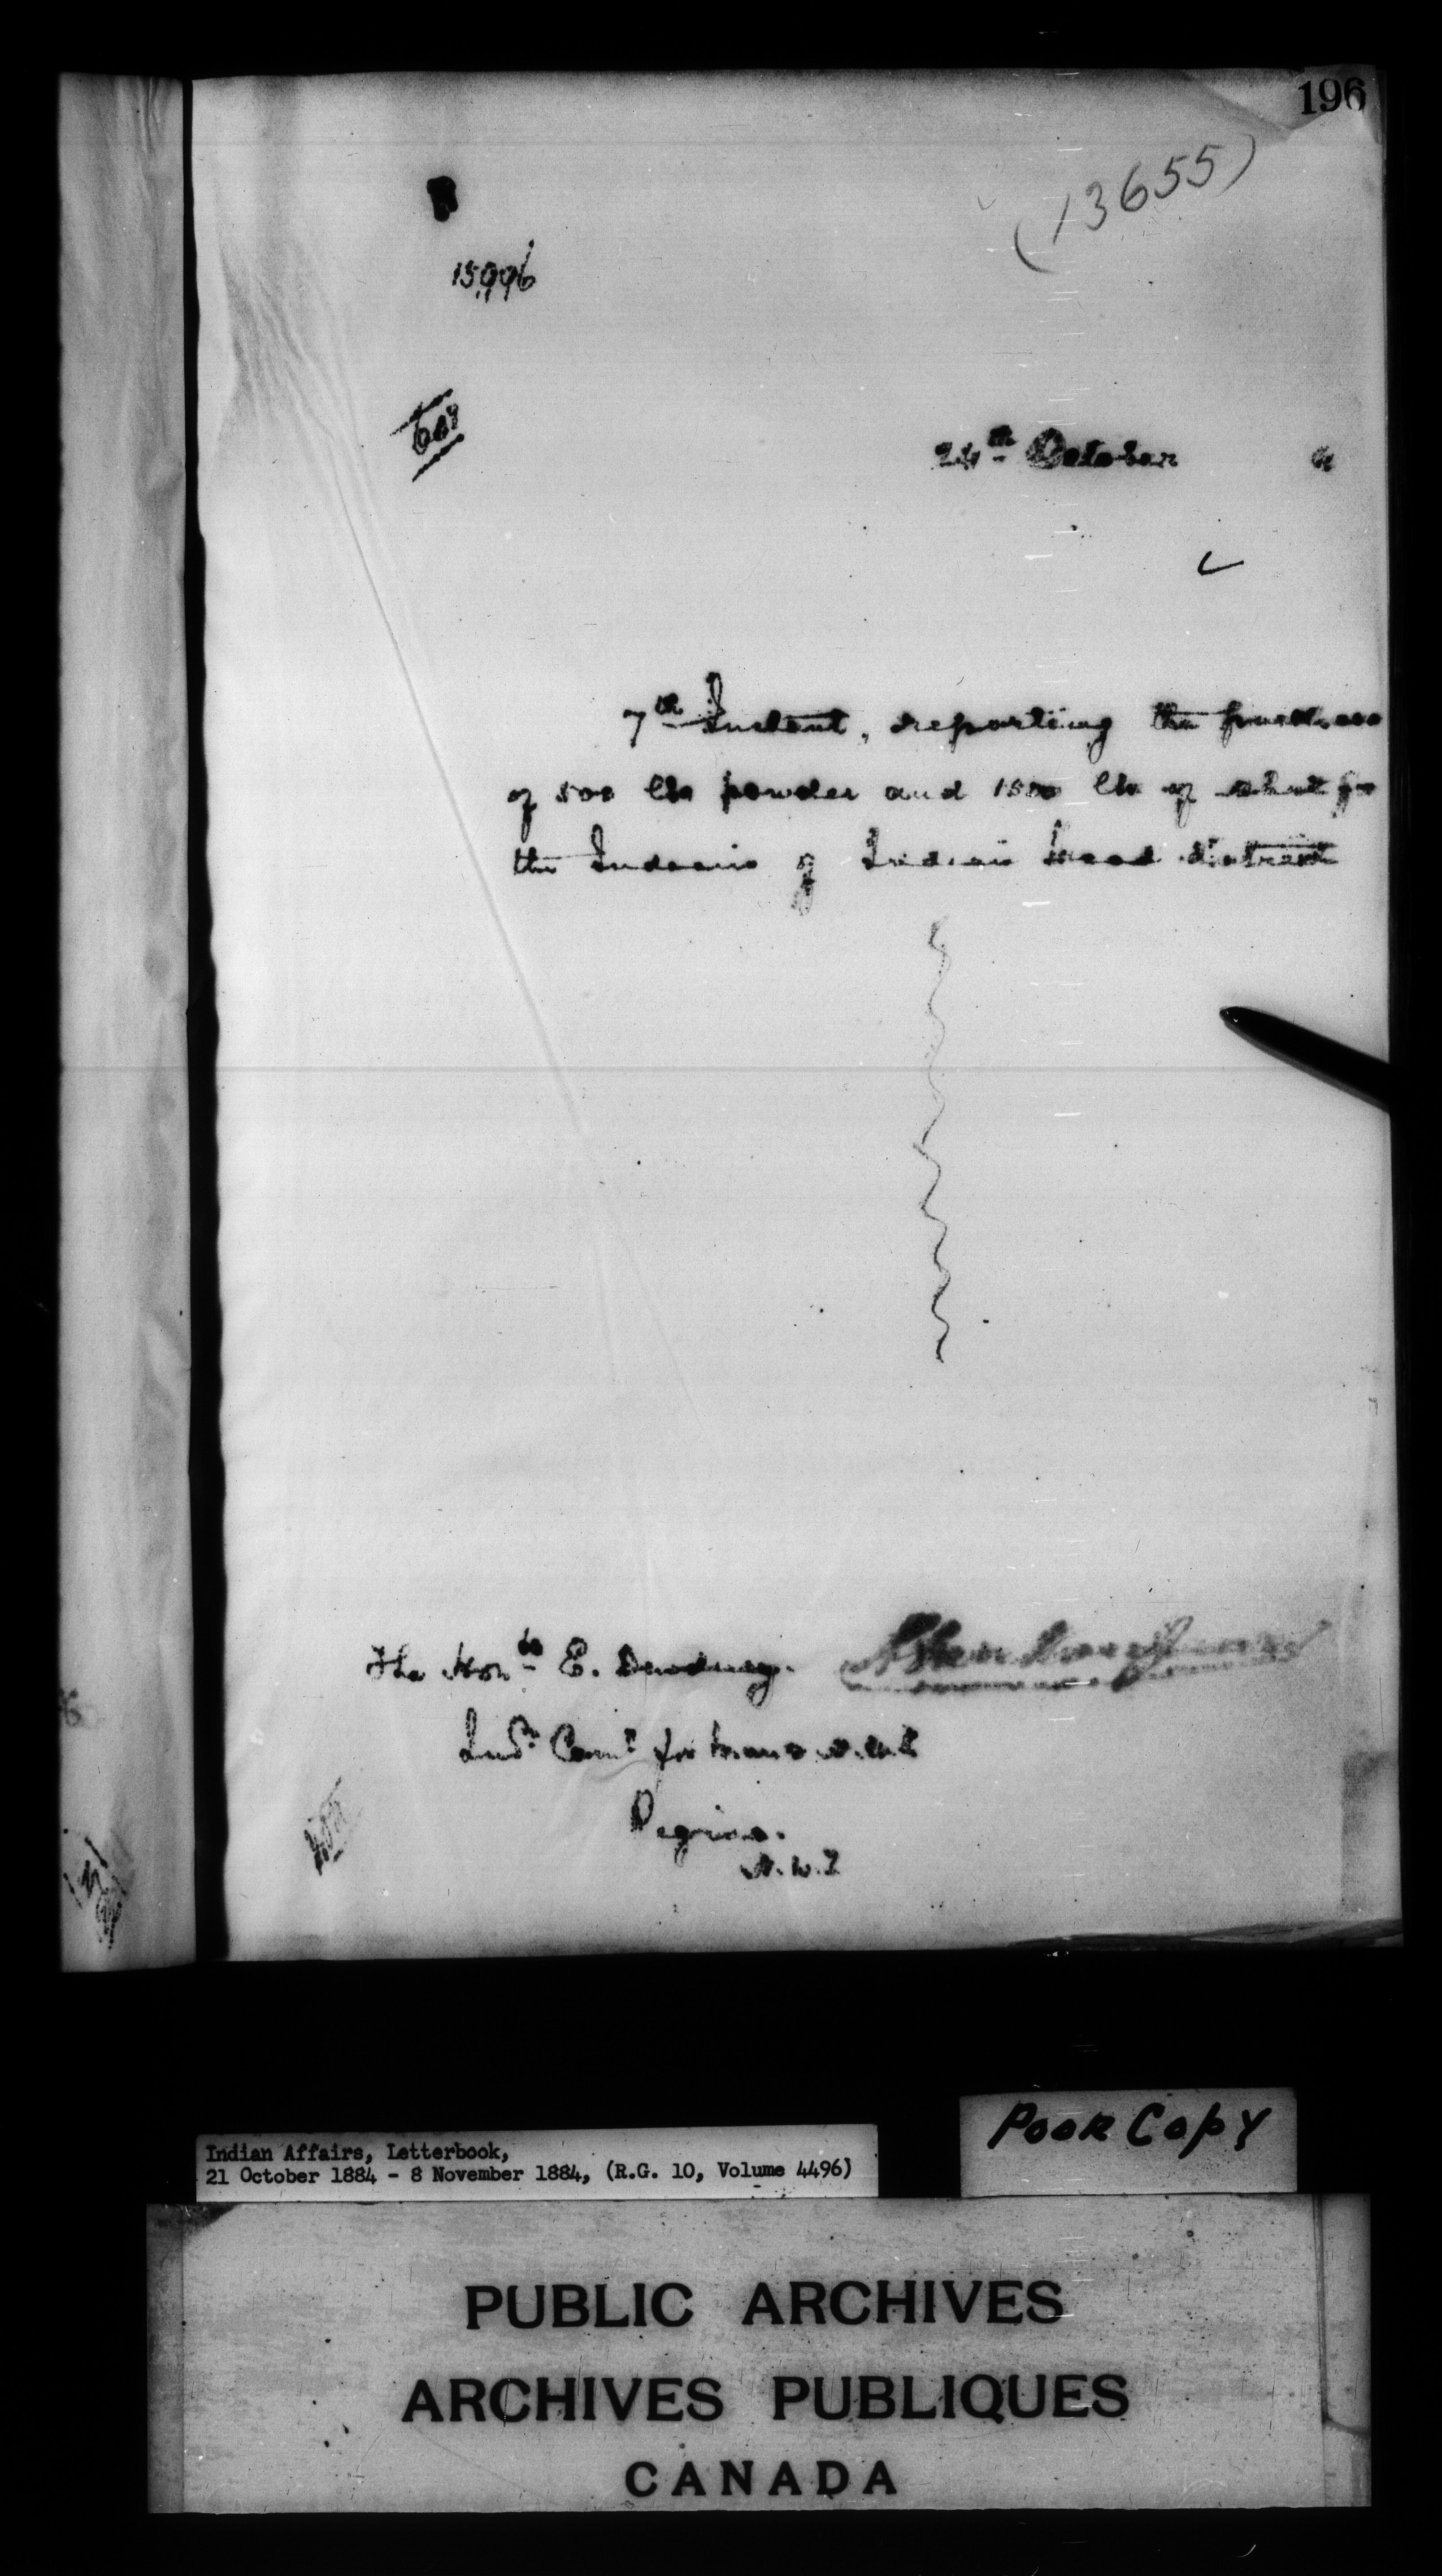 196
(13655)
15996
24th October 4
7th Instant, reporting the purchase
of 500 lbs powder and 1500 lbs of shot for
the Indians of Indian Head district
The Honble E. Dewdney.
Indn Comr for
Regina.
N.W.T
Poor Copy
Indian Affairs, Letterbook,
21 October 1884 - 8 November 1884, (R.G. 10, Volume 4496)
PUBLIC ARCHIVES
ARCHIVES PUBLIQUES
CANADA